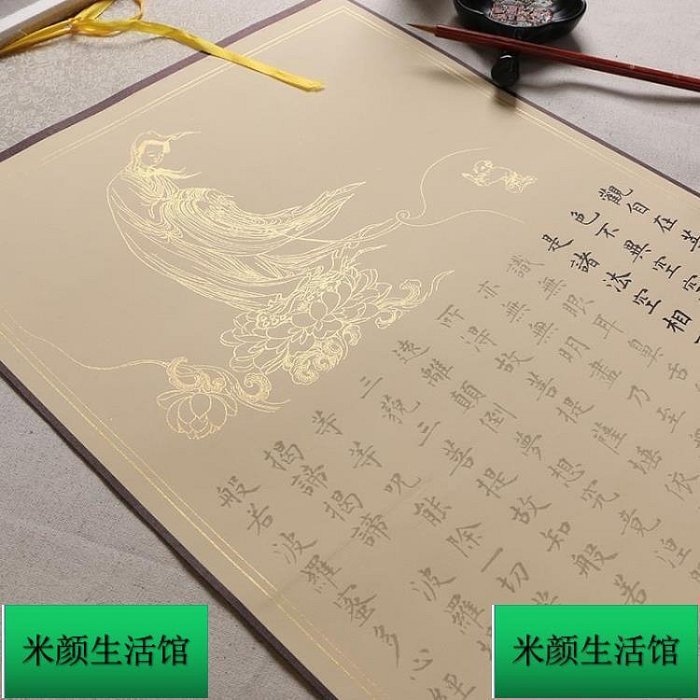 觀自在菩
色不異空空
是諸法空相
識無眼耳鼻舌
亦無無明盡乃至
所得故菩提薩埵依
遠離顛倒夢想究竟涅
三藐三菩提故知般若
等等呪能除一切
揭諦揭諦波羅
般若波羅蜜多心經
米颜生活馆
米颜生活馆